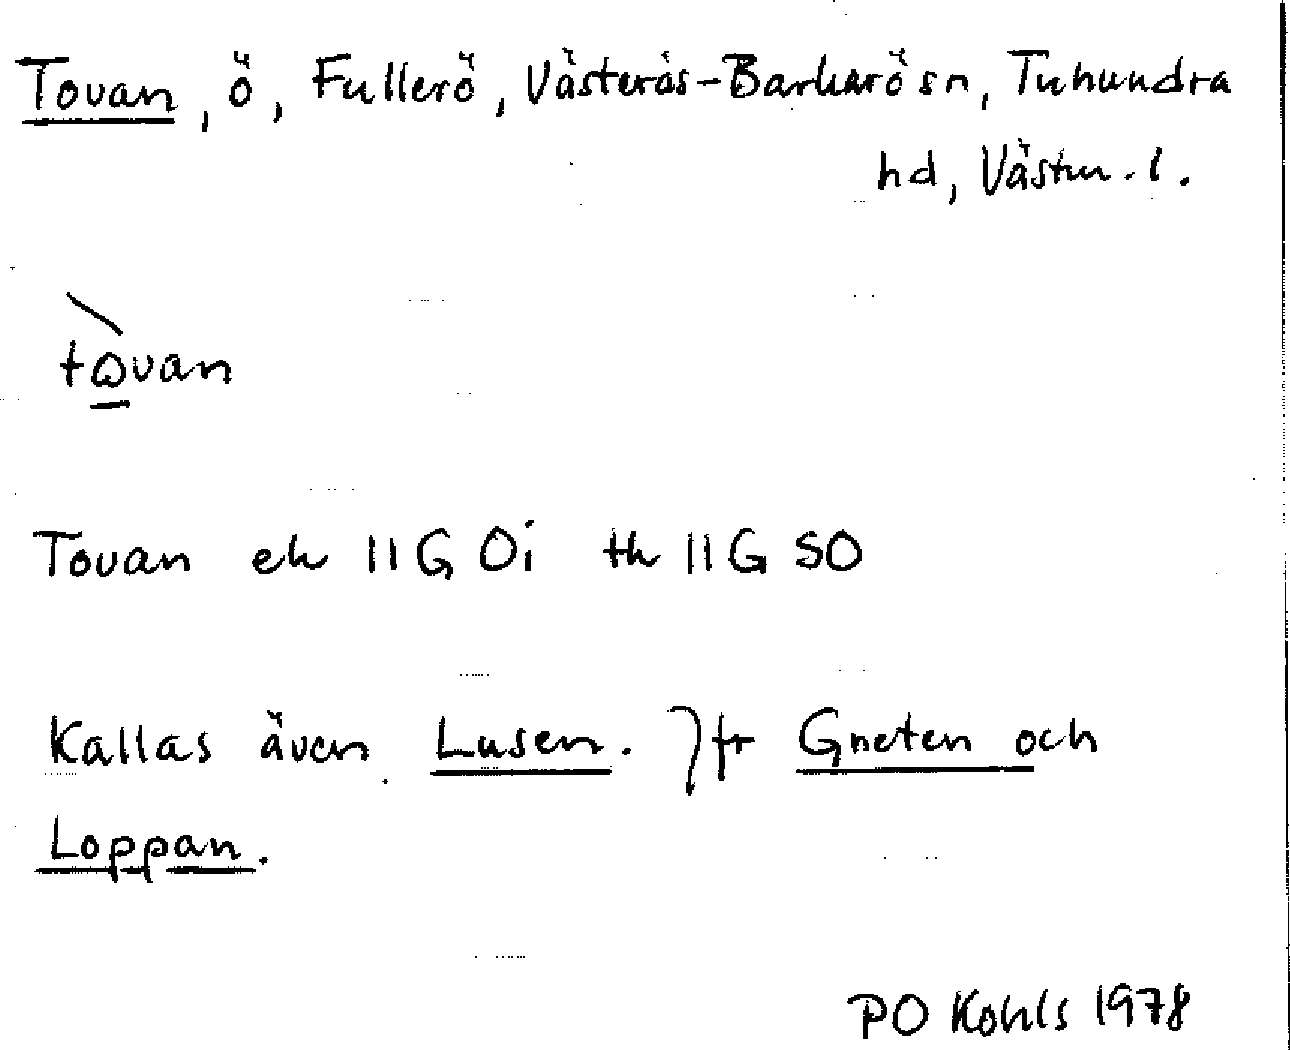 Tovan, ö, Fullerö, Västerås-Barkarö sn, Tuhundra
hd, Västm. l.
tòvan
Tovan ek 11G 0i tk 11G SO
Kallas även Lusen. Jfr Gneten och
Loppan.
PO Kohls 1978